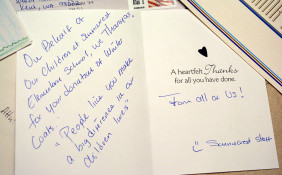 On Behalf of
Our Children at Sunncrest
Elementary School, we Thank you,
for your donation of Winter
Coats!
"People like you make
a big difference in our
children lives"
A heartfelt Thanks
for all you have done.
From all of us!
Sunncrest Staff